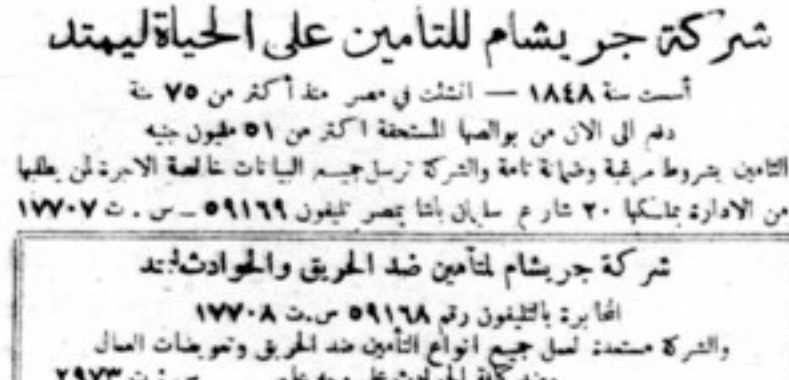 شركة جريشام للتأمين على الحياة ليمتد
أسست سنة ١٨٤٨ — انشئت في مصر منذ أكثر من ٧٥ سنة
دفع الى الان من بوالصها المستحقة اكثر من ٥١ مليون جنيه
التامين بشروط مرغبة وضمانة تامة والشركة ترسل جميع البيانات خالصة الاجرة لمن يطلبها
من الادارة بملكها ٢٠ شارع سليمان باشا بمصر تليفون ٥٩١٦٩ – س . ت ١٧٧٠٧
شركة جريشام لتأمين ضد الحريق والحوادث ليمتد
المخابرة بالتليفون رقم ٥٩١٦٨ س.ت ١٧٧٠٨
والشركة مستعدة لعمل جميع انواع التأمين ضد الحريق وتعويضات العمال
وضد كافة الحوادث على ٢٩٧٣